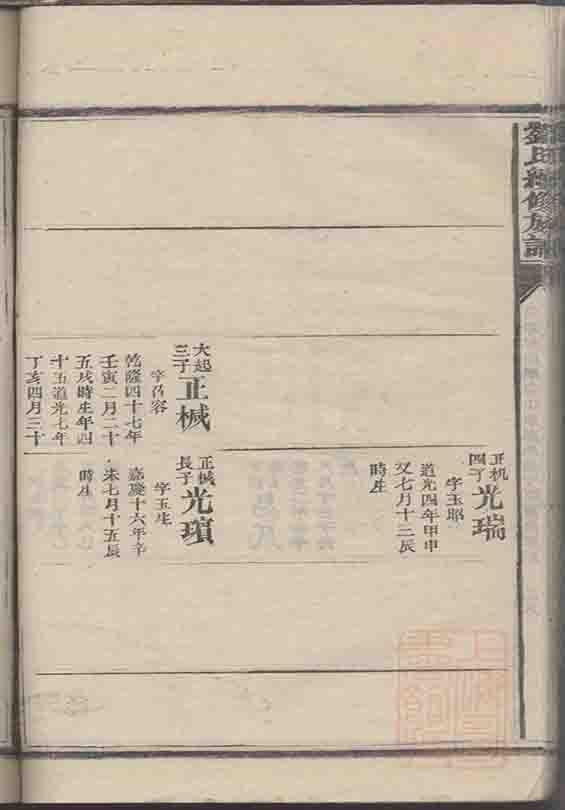 劉氏續修族譜
正机
四子
光瑞
字玉昭
道光四年甲申
又七月十二辰
時生
大起
三子
正椷
字召容
乾隆四十七年
壬寅二月二十
五戌時生年四
十五道光七年
丁亥四月三十
正椷
長子
光瓚
字玉生
嘉慶十六年辛
未七月十五辰
時生